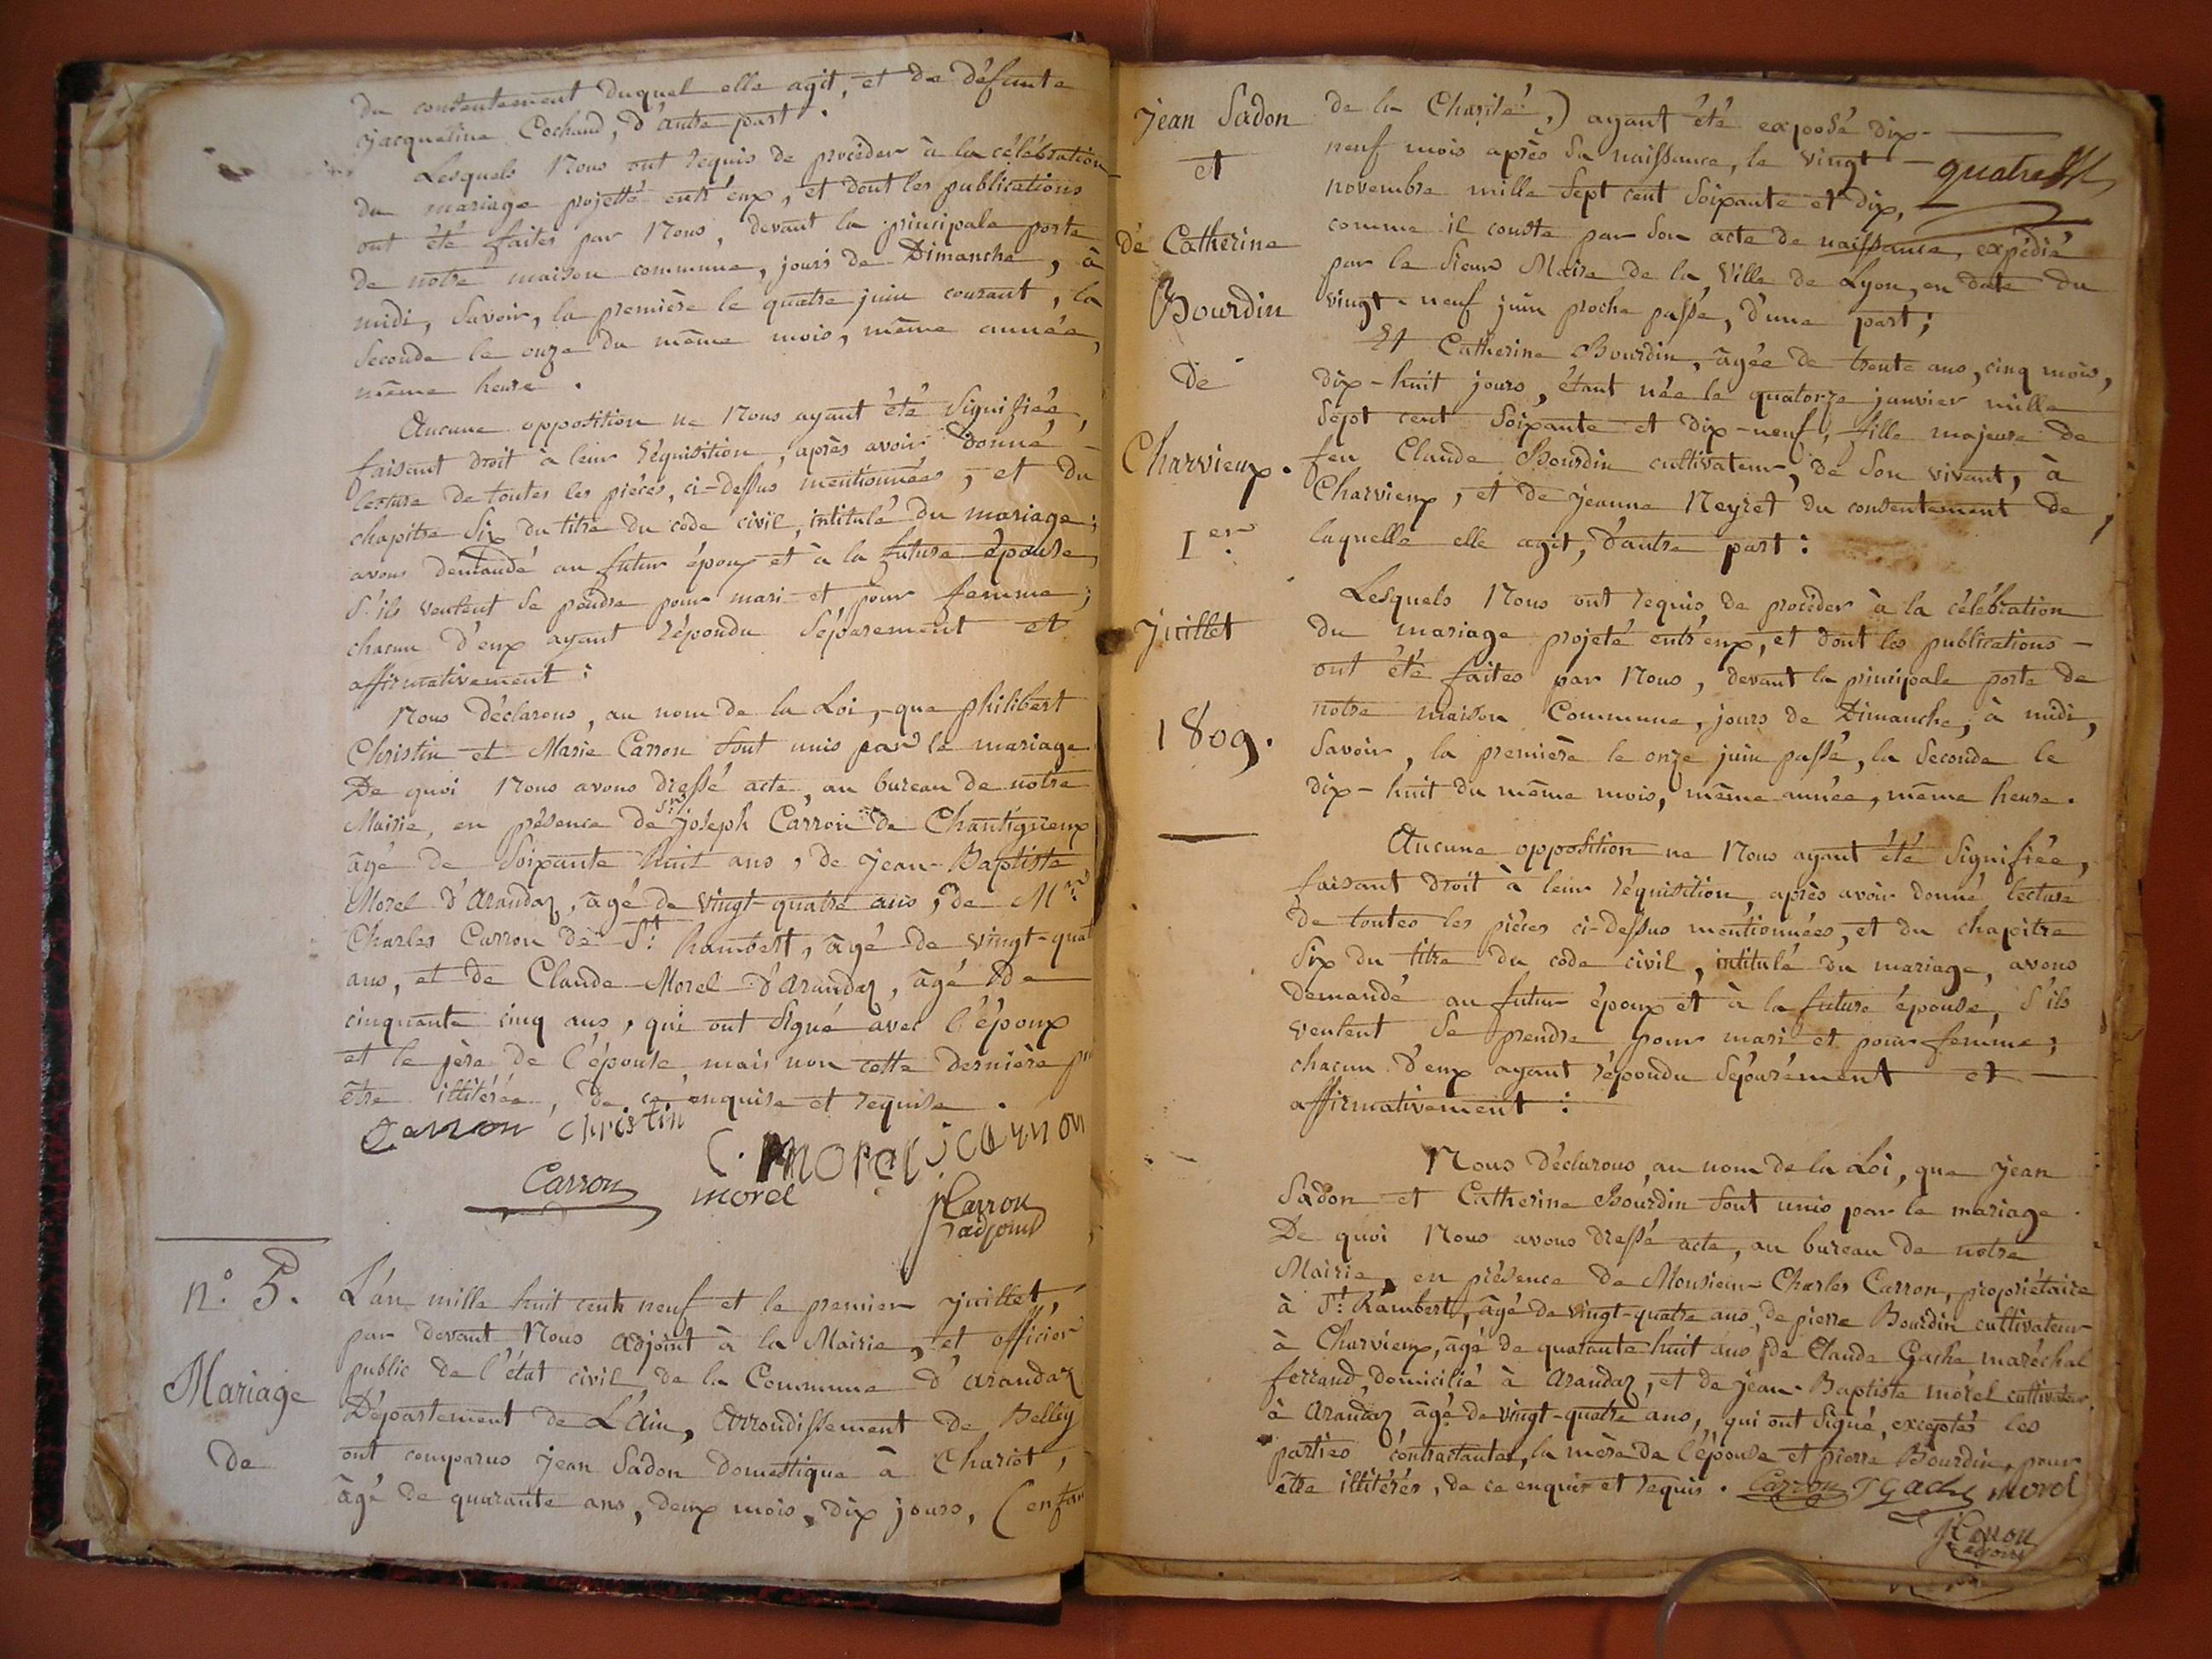 du consentement duquel elle agit, et de défunte
jacqueline Cochaud, d'autre part.
Lesquels Nous ont requis de procéder à la célébration
du mariage projetté entr'eux, et dont les publications
ont été faites par Nous, devant la principale porte
de notre maison commune, jours de Dimanche, à
midi, Savoir, la première le quatre juin courant, la
Seconde le onze du même mois, même année,
même heure.
Aucune opposition ne Nous ayant été Signifiée,
faisant droit à leur réquisition, après avoir donné
lecture de toutes les pièces, ci-dessus mentionnées, et du
chapitre Six du titre du code civil, intitulé du mariage;
avons demandé au futur époux et à la future épouse,
S'ils veulent Se prendre pour mari et pour femme;
chacun d'eux ayant répondu Séparement et
affirmativement:
Nous déclarons, au nom de la Loi, que philibert
Christin et Marie Carron Sont unis par le mariage
De quoi Nous avons dressé acte, au bureau de notre
Mairie, en présence de Sr. joseph Carron de Chantigneux
âgé de Soixante huit ans, de jean-Baptiste
Morel d'Arandaz, âgé de vingt-quatre ans, de Mr.
Charles Carron de St. Rambert, âgé de vingt-quat
ans, et de Claude Morel d'Arandaz, âgé de
cinquante cinq ans, qui ont Signé avec l'époux
et le père de l'épouse, mais non cette dernière
être illitérée, de ce enquise et requise.
Carron Christin C. Morel jcarron
Carron morel
jCarron
adjoint
n.° 5.
Mariage
de
L'an mille huit cent neuf et le premier juillet,
par devant Nous adjoint à la Mairie, et officier
public de l'état civil de la Commune d'arandaz
Département de L'Ain, Arrondissement de Belley
ont comparus jean Sadon domestique à Chariot,
âgé de quarante ans, deux mois, dix jours, (enfant
jean Sadon
et
de Catherine
Bourdin
de
Charvieux.
Ier.
juillet
1809.
de la Charité,) ayant été exposé dix-
neuf mois après Sa naissance, le vingt-quatre
novembre mille Sept cent Soixante et dix,
comme il conste par Son acte de naissance, expédié
par le Sieur Maire de la Ville de Lyon, en date du
vingt-neuf juin proche passé, d'une part;
Et Catherine Bourdin, âgée de trente ans, cinq mois,
dix-huit jours, étant née le quatorze janvier mille
Sept cent Soixante et dix-neuf, fille majeure de
feu Claude Bourdin cultivateur, de Son vivant, à
Charvieux, et de jeanne Neyret du consentement de
laquelle elle agit, d'autre part:
Lesquels Nous ont requis de procéder à la célébration
du mariage projeté entr'eux, et dont les publications
ont été faites par Nous, devant la principale porte de
notre maison Commune, jours de Dimanche, à midi,
Savoir, la première le onze juin passé, la Seconde le
dix-huit du même mois, même année, même heure.
Aucune opposition ne Nous ayant été Signifiée,
faisant droit à leur réquisition, après avoir donné lecture
de toutes les pièces ci-dessus mentionnées, et du chapitre
Six du titre du code civil, intitulé du mariage, avons
demandé au futur époux et à la future épouse, S'ils
veulent Se prendre pour mari et pour femme;
chacun d'eux ayant répondu Séparément et
affirmativement:
Nous déclarons, au nom de la Loi, que jean
Sadon et Catherine Bourdin Sont unis par le mariage.
De quoi Nous avons dressé acte, au bureau de notre
Mairie, en présence de Monsieur Charles Carron, propriétaire
à St. Rambert, âgé de vingt-quatre ans, de pierre Bourdin cultivateur
à Charvieux, âgé de quarante huit ans, de Claude Gache maréchal
ferrand, domicilié à Arandaz, et de jean-Baptiste morel cultivateur
à Arandaz âgé de vingt-quatre ans, qui ont Signé, exceptés les
parties contractantes, la mère de l'épouse et pierre Bourdin, pour
être illitérés, de ce enquis et requis. Carron Gache morel
jCarron
adjoint